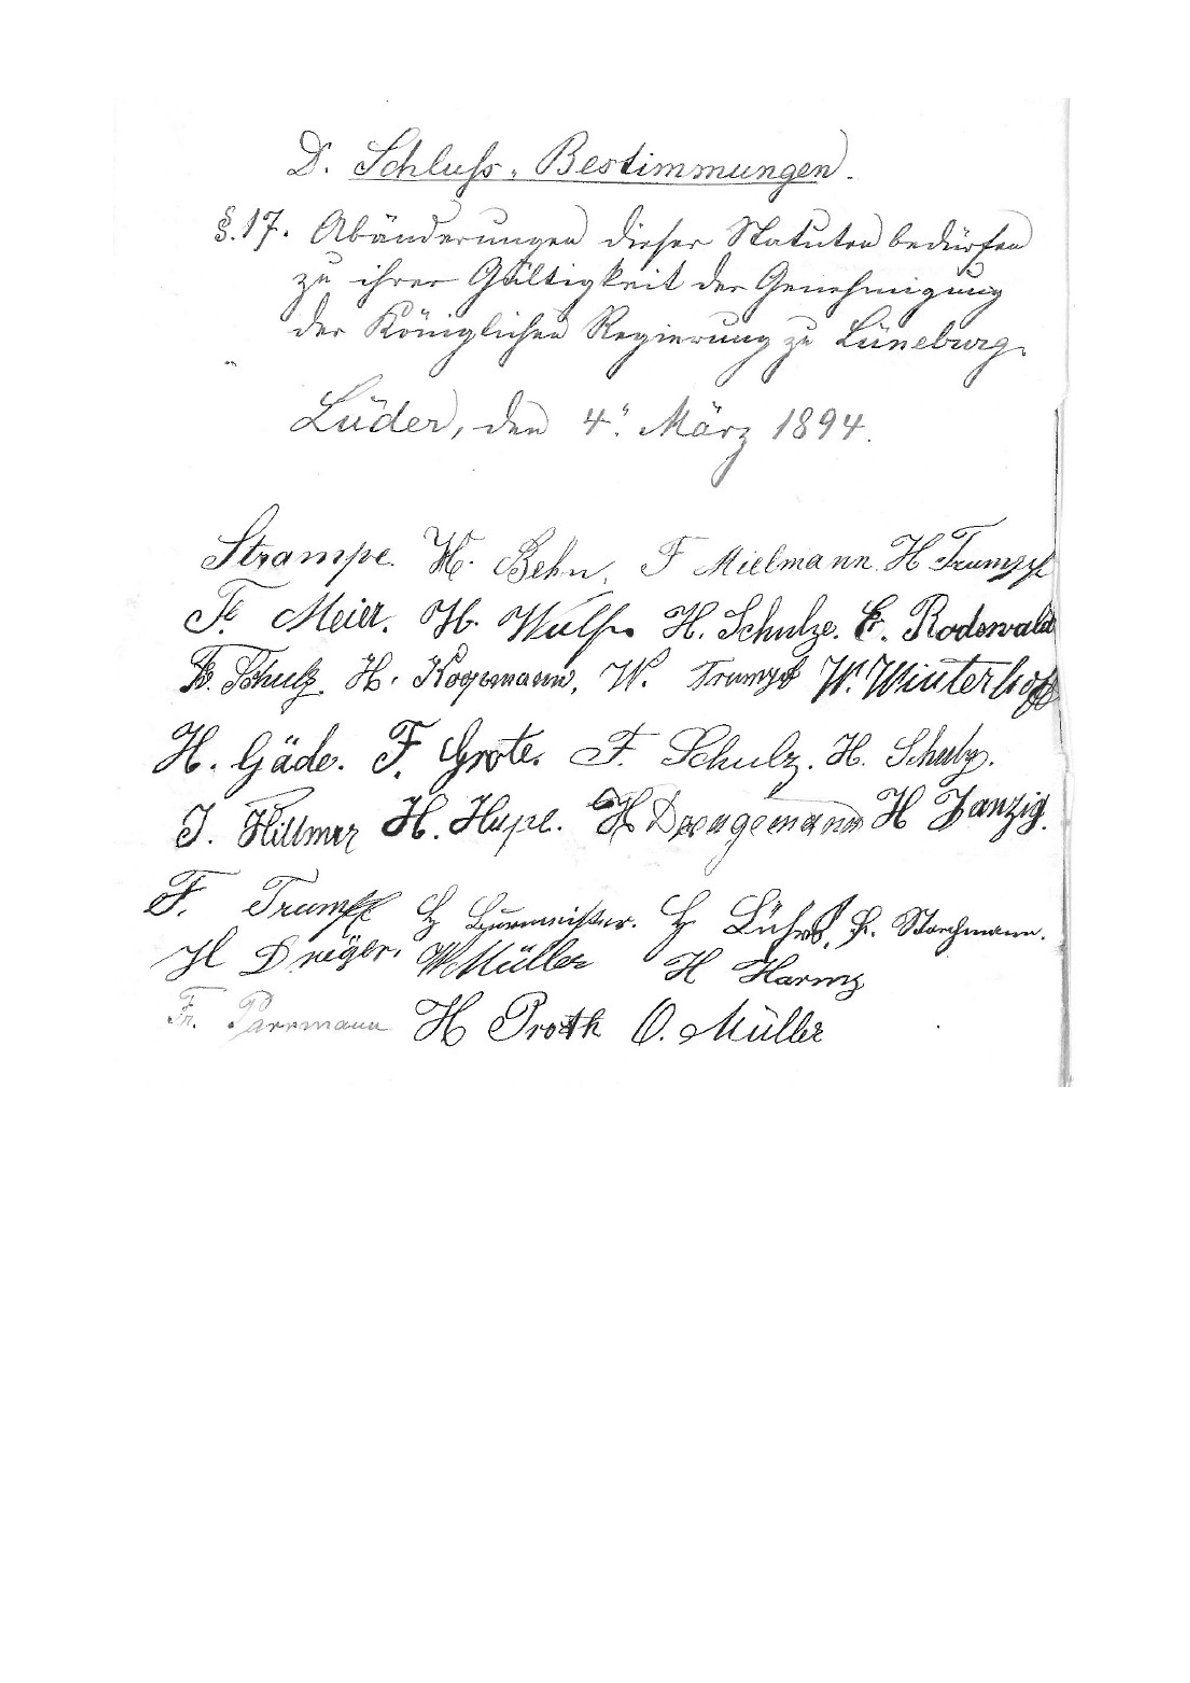 D. Schluss-Bestimmungen.
§. 17. Abänderungen dieser Statuten bedürfen
zu ihrer Gültigkeit der Genehmigung
der Königlichen Regierung zu Lüneburg.
Lüder, den 4. März 1894.
Strampe. H. Behn, F Mielmann. H Trumpf
Fr. Meier. H. Wulf. H. Schulze. E. Rodewald
Fr. Schulz. H. Kogemann, W. Trumpf W. Winterhoff
H. Gäde. F. Grote. F. Schulz. H. Schulz.
J. Hillmer H. Hupe. H Dragemann H Janzig.
F. Trumpf H Burmeister. H Lührs, Storchmann.
H Dreger. W Müller H Harms
Fr. Parrmann H Proth O. Müller